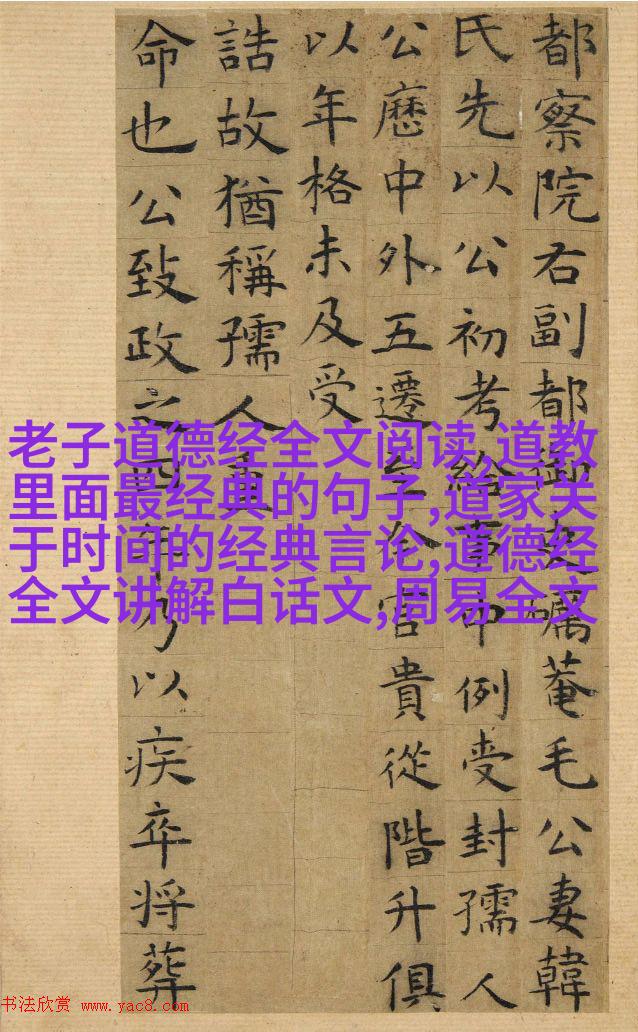 都察院右副都御史礪菴毛公妻韓
氏先以公初考給事中例受封孺人
公歷中外五遷至今官貴從階升俱
以年格未及受
誥故猶稱孺人重
命也公致政之四年乃以疾卒將葬
老子道德经全文阅读,道教
里面最经典的句子,道家关
于时间的经典言论,道德经
全文讲解白话文,周易全文
书法欣赏 www.yac8.com